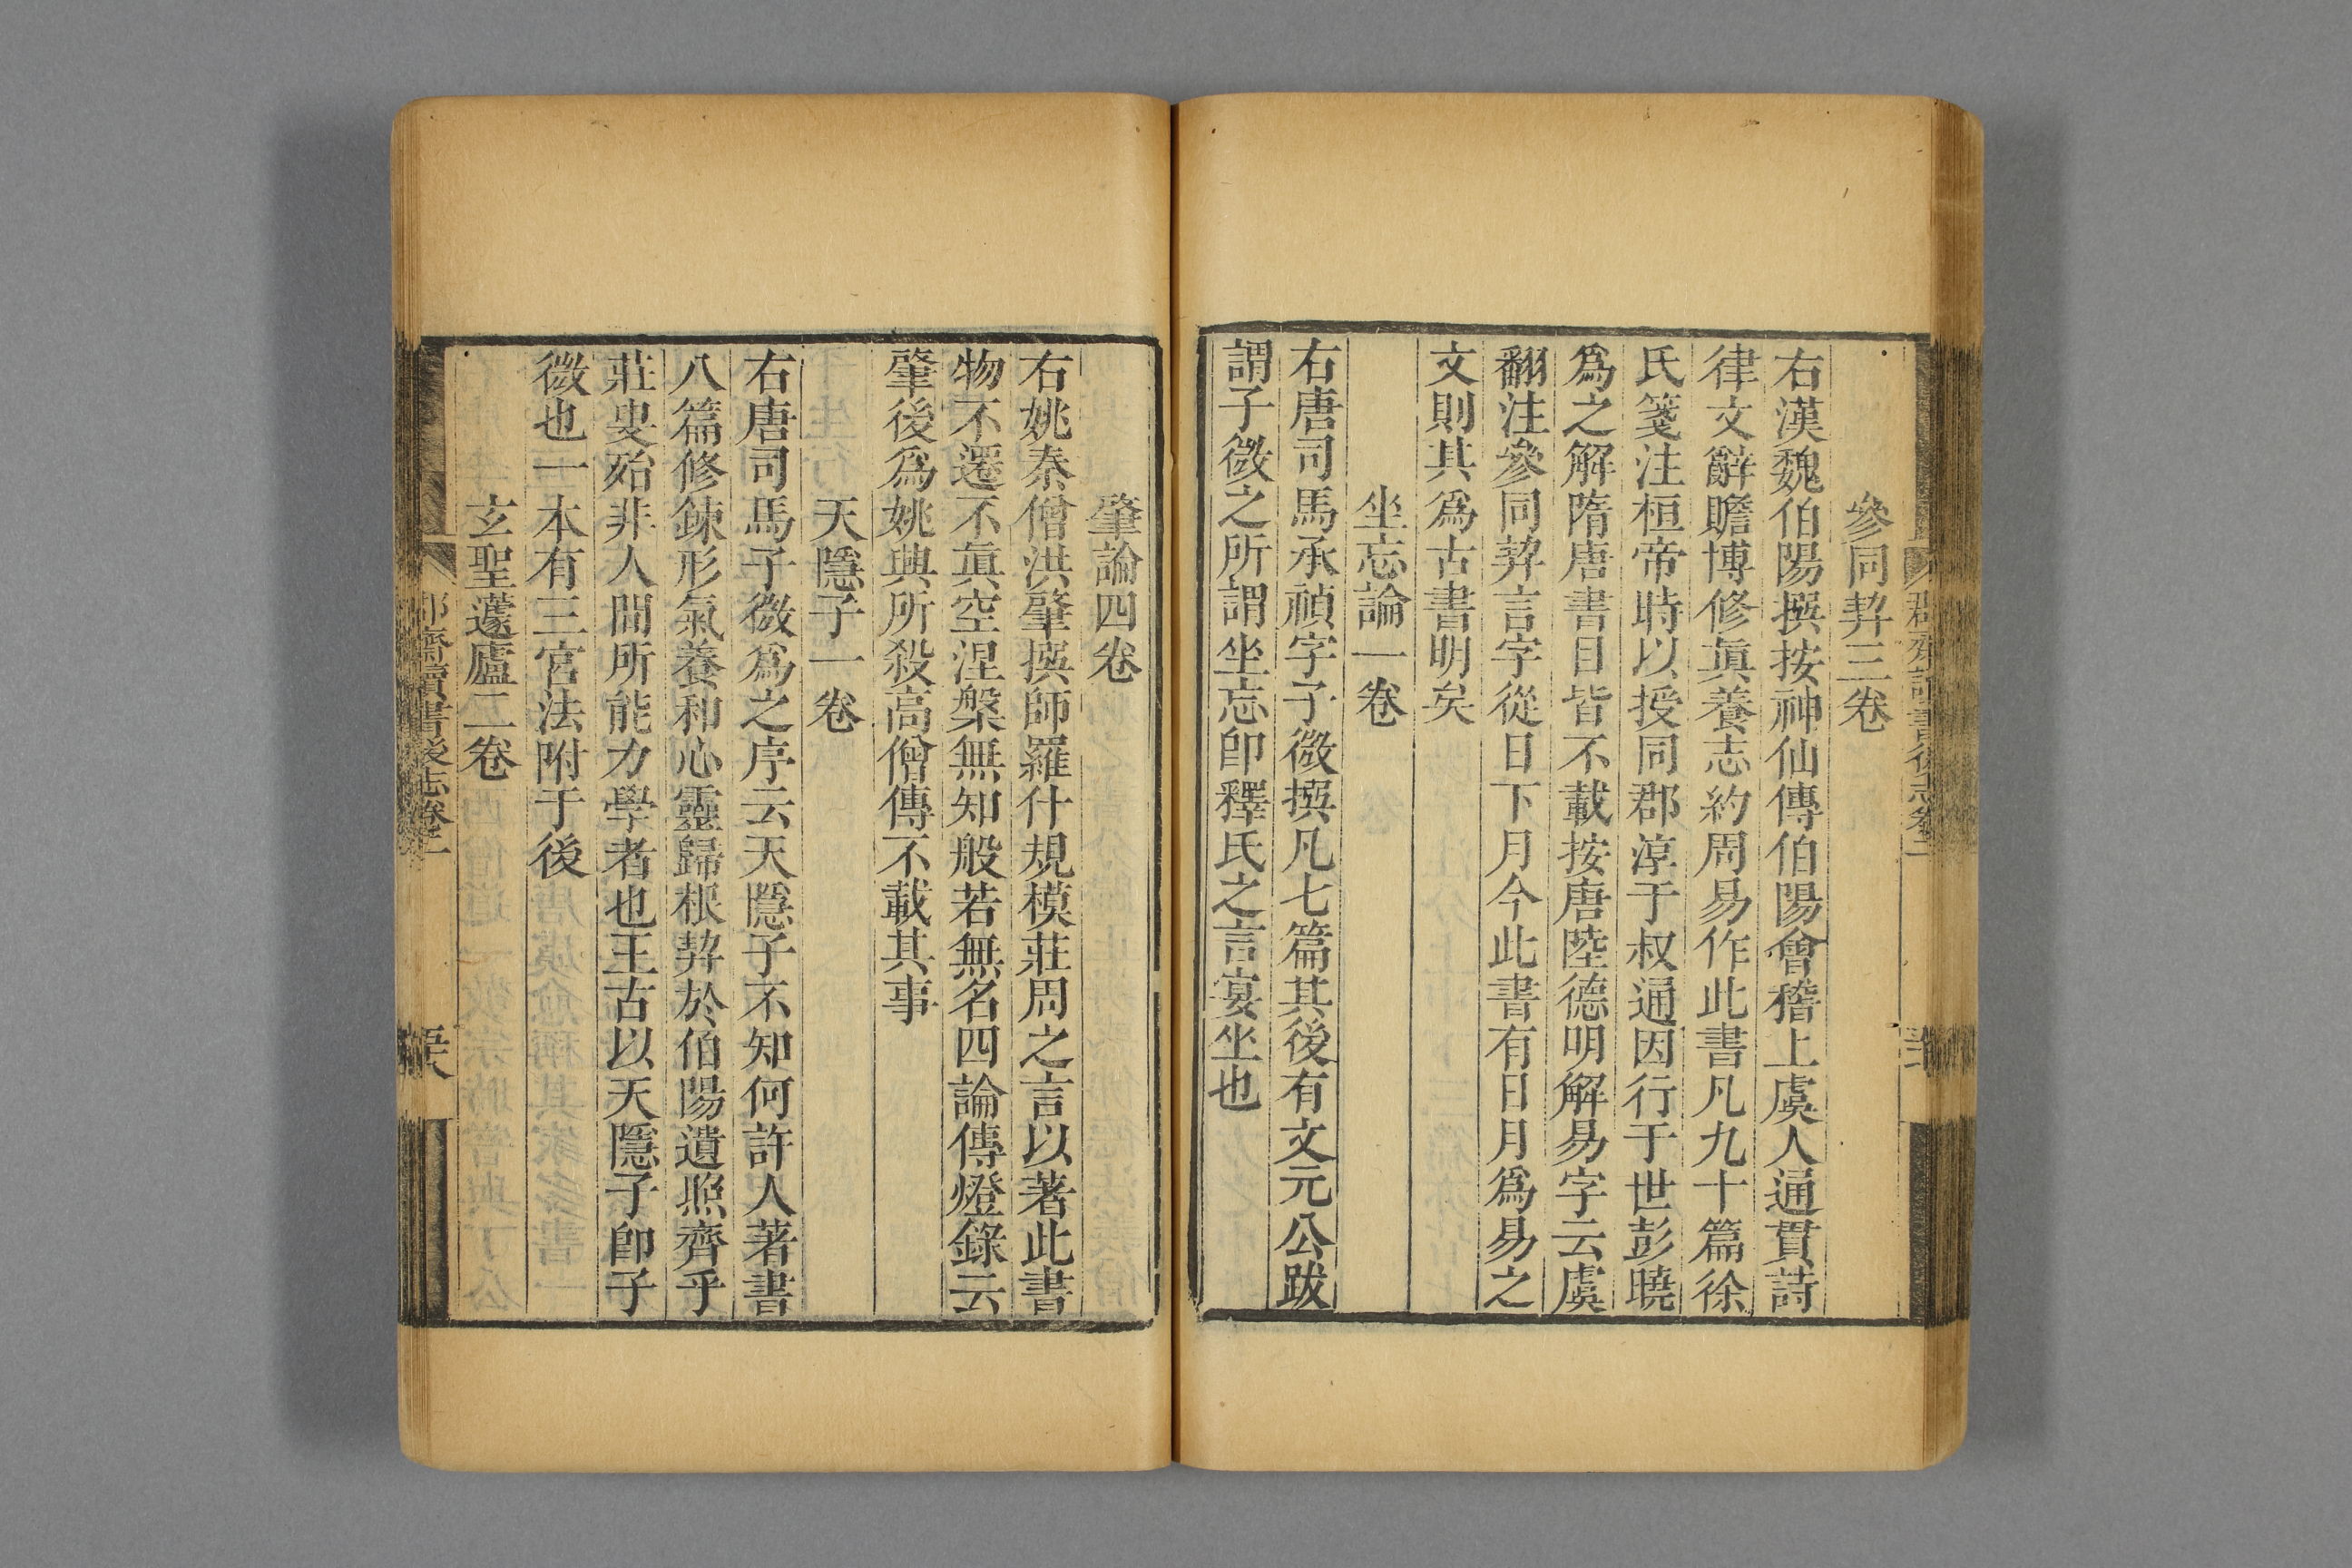 參同契三卷
右漢魏伯陽撰按神仙傳伯陽會稽上虞人通貫詩
律文辭贍博修眞養志約周易作此書凡九十篇徐
氏箋注桓帝時以授同郡淳于叔通因行于世彭曉
爲之解隋唐書目皆不載按唐陸德明解易字云虞
翻注參同契言字從日下月今此書有日月爲易之
文則其爲古書明矣
坐忘論一卷
右唐司馬承禎字子微撰凡七篇其後有文元公跋
謂子微之所謂坐忘卽釋氏之言宴坐也
肇論四卷
右姚秦僧洪肇撰師羅什規模莊周之言以著此書
物不遷不眞空涅槃無知般若無名四論傳燈錄云
肇後爲姚興所殺高僧傳不載其事
天隱子一卷
右唐司馬子微爲之序云天隱子不知何許人著書
八篇修鍊形氣養和心靈歸根契於伯陽遺照齊乎
莊叟殆非人間所能力學者也王古以天隱子卽子
微也一本有三宮法附于後
玄聖蘧廬二卷
郡齋讀書後志卷二